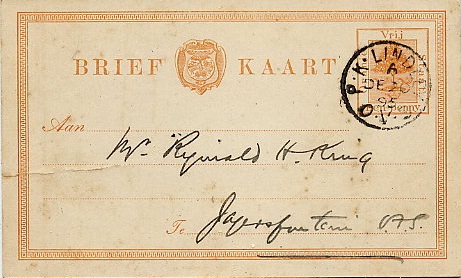 Vrij
BRIEF KAART
P.K. LINDLEY
A
DE
95
O.V.S.
Penny.
Aan
Mr Reginald H. Krug
Te
Jagersfontein O.F.S.